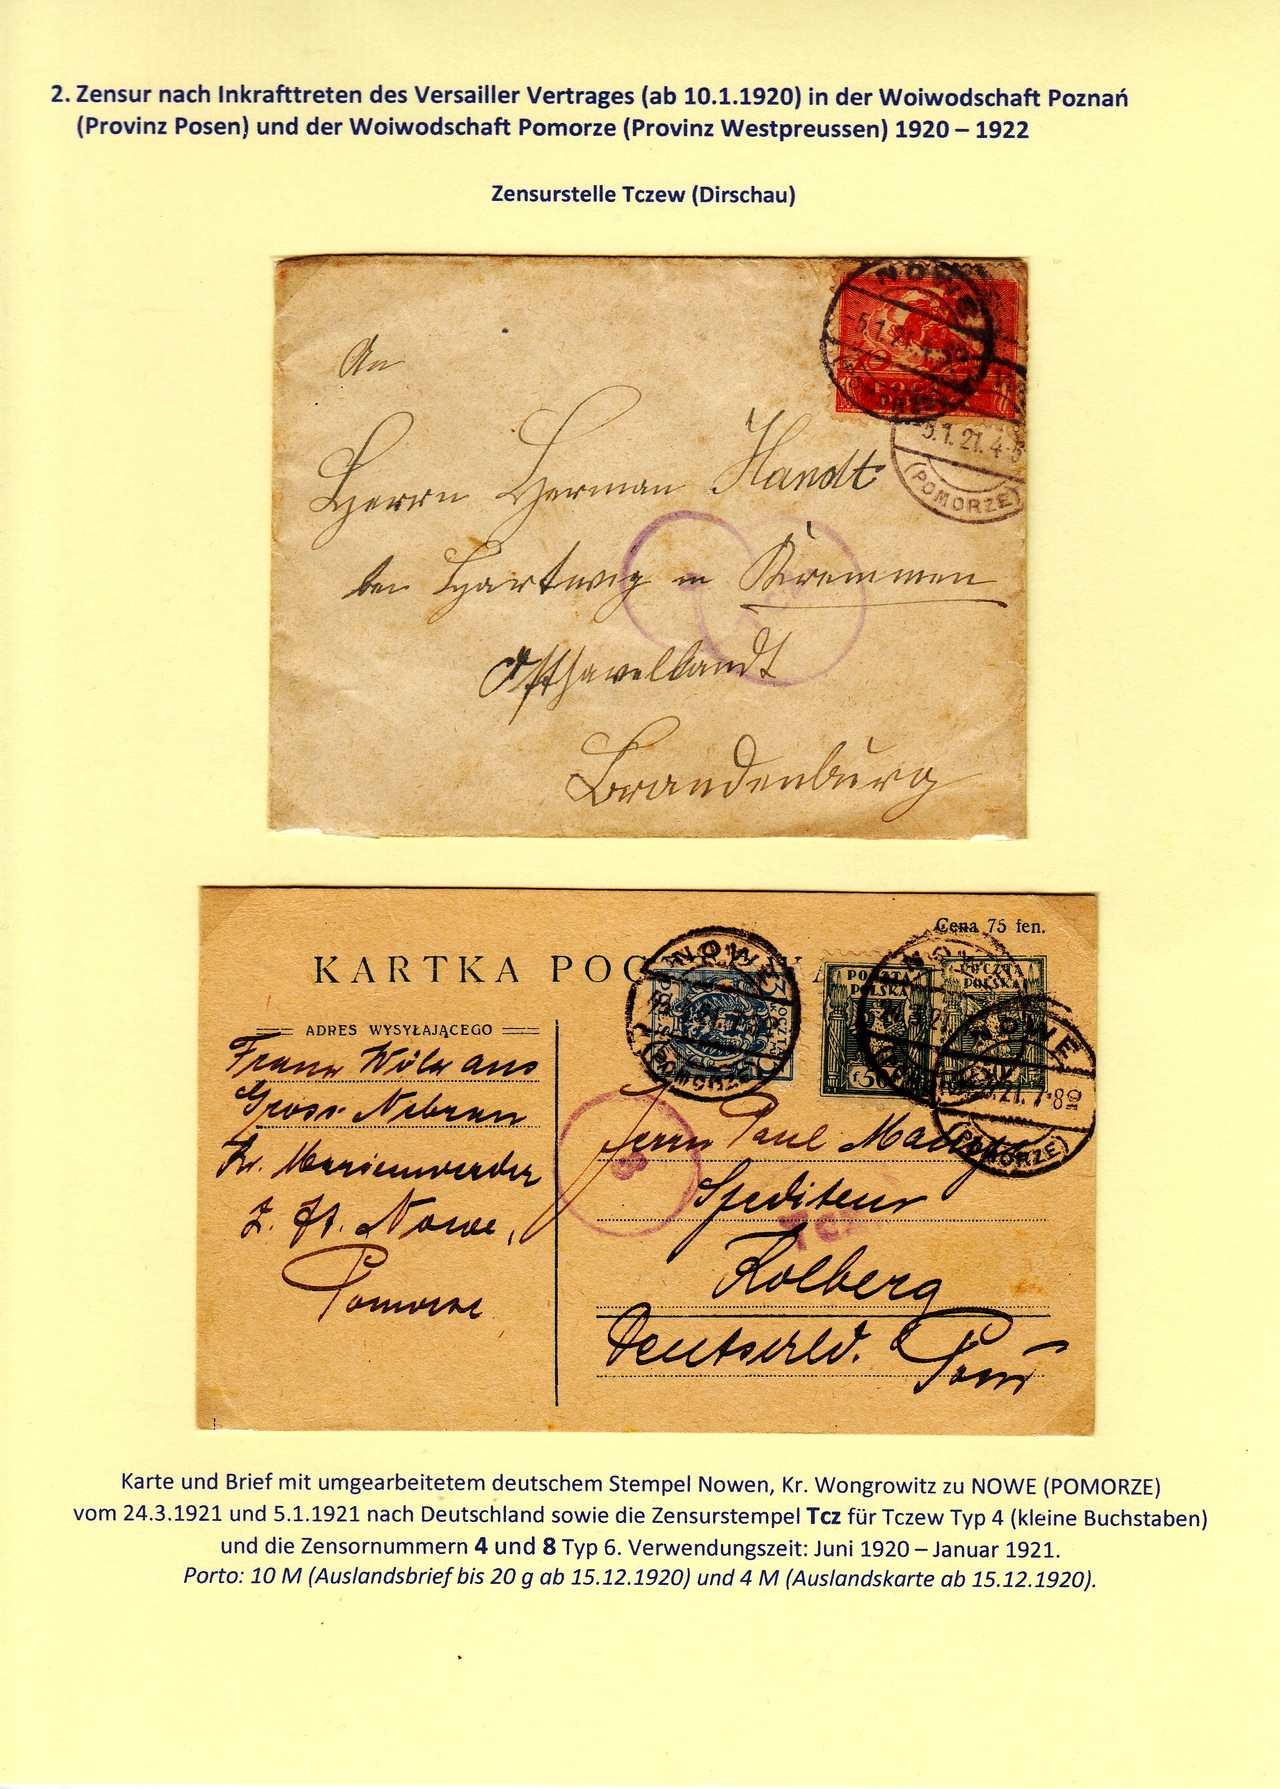 2. Zensur nach Inkrafttreten des Versailler Vertrages (ab 10.1.1920) in der Woiwodschaft Poznań
(Provinz Posen) und der Woiwodschaft Pomorze (Provinz Westpreussen) 1920 – 1922
Zensurstelle Tczew (Dirschau)
NOWE
-5.1.21.
POCZTA
-5.1.21. 4-5
(POMORZE)
An
Herrn Herman Handt
bei Hartwig in Kremmen
Osthavellandt
Brandenburg
Cena 75 fen.
KARTKA POC
NOWE
(POMORZE)
POCZTA POLSKA
f50
POCZTA POLSKA
NOWE
.21. 7-8
(POMORZE)
ADRES WYSYŁAJĄCEGO
Franz aus
Gross Nebrau
Kr. Marienwerder
Z. Zt. Nowe,
Pomorze
8
Tcz
Herrn Paul
Spediteur
Kolberg
Deutschld. Pom
Karte und Brief mit umgearbeitetem deutschem Stempel Nowen, Kr. Wongrowitz zu NOWE (POMORZE)
vom 24.3.1921 und 5.1.1921 nach Deutschland sowie die Zensurstempel Tcz für Tczew Typ 4 (kleine Buchstaben)
und die Zensornummern 4 und 8 Typ 6. Verwendungszeit: Juni 1920 – Januar 1921.
Porto: 10 M (Auslandsbrief bis 20 g ab 15.12.1920) und 4 M (Auslandskarte ab 15.12.1920).